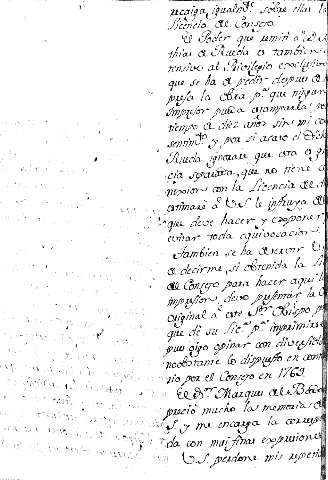 recaiga, igualmte. sobre ellas la
Licencia del Consejo.
El Poder que remití a Dn.
thias de Rueda es tambien
tensivo al Privilegio exclusivo
que se ha de pedir despues de
presa la Obra pa. que ningun
Impresor pueda estamparla pr
tiempo de diez años sin mi con
sentimto. y por si acaso el Dicho
Rueda ignorare que esta es gra
cia separada, que no tiene co
nexion con la Licencia del
estimaré a V.S. le instruya de
que debe hacer y exponer
evitar toda equivocacion.
Tambien se ha de servir V
de decirme, si obtenida la Li
del Consejo para hacer aquí la
impresion, devo presentar la
Original a este Sor. Obispo pa
que dé su Lica. pa. imprimirse
pues oigo opinar con diversidad
no obstante lo dispuesto en contra
rio por el Consejo en 1769.
El Sor. Marques del
preció mucho la memoria de
S. y me encarga la corresponda
da con mas finas expresiones
V.S. perdone mis repeti